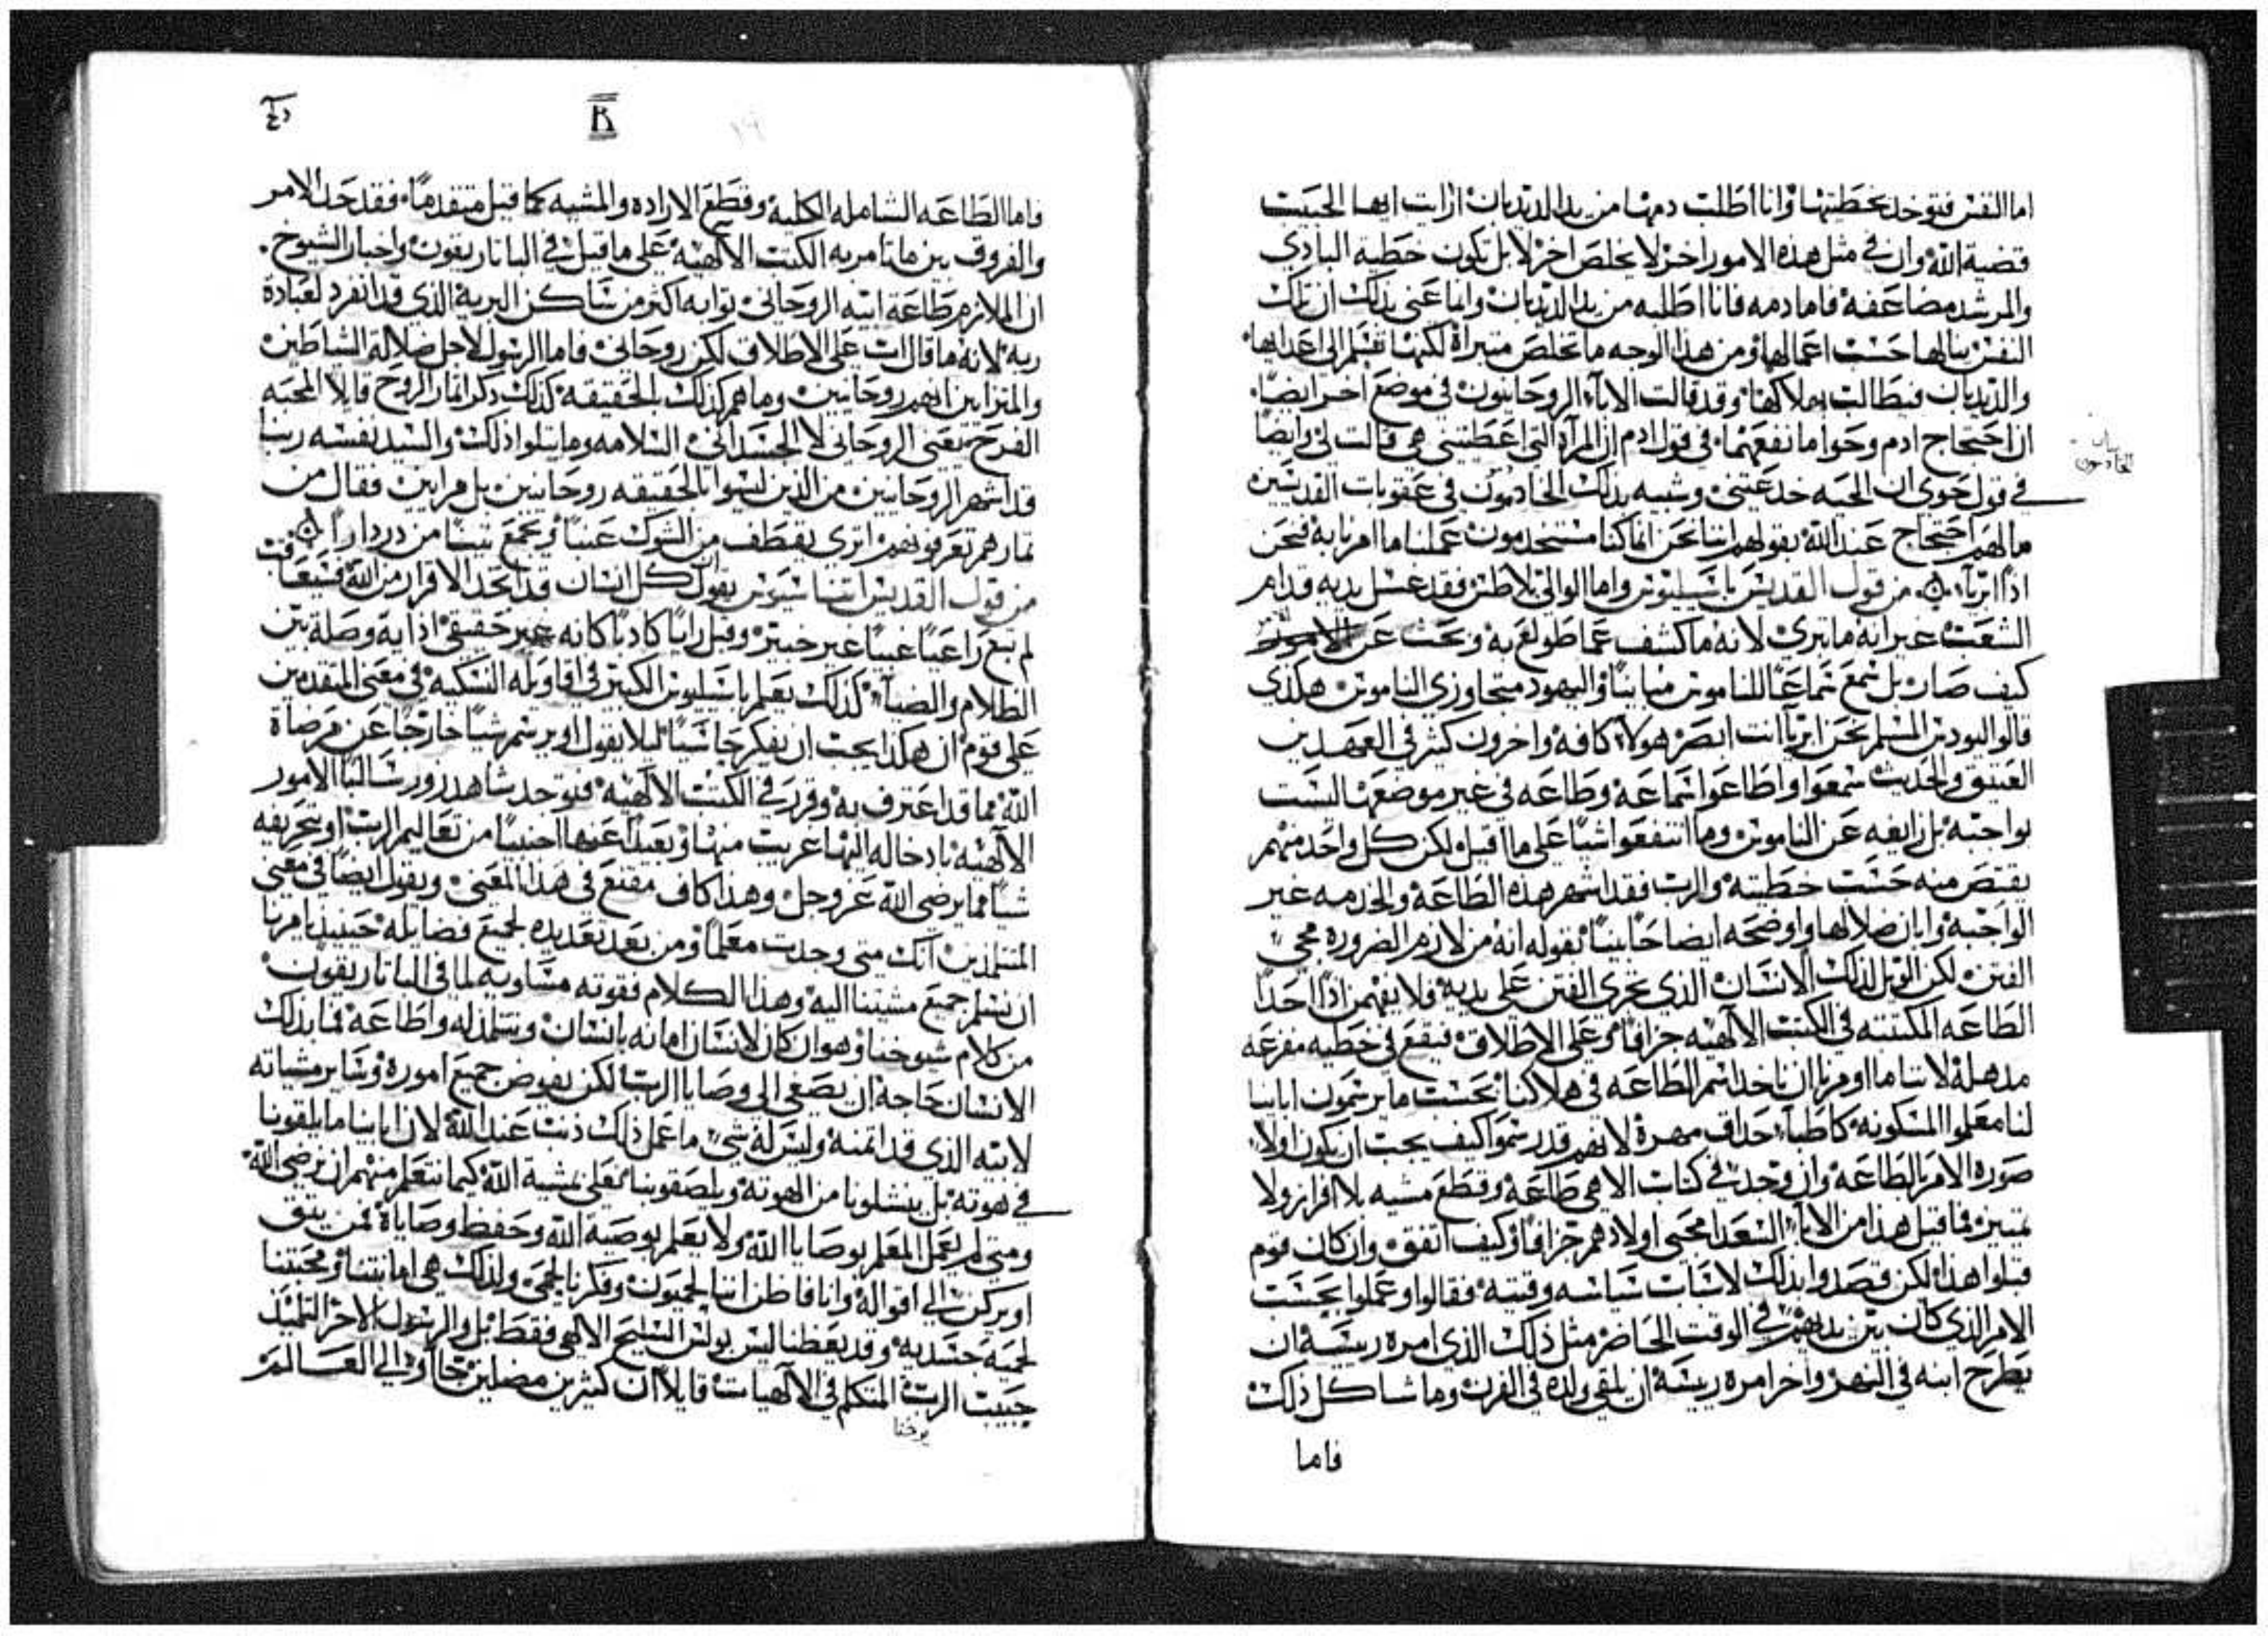 اما النفس فتوخد بخطيتها وانا اطلب دمها من يد الديدبان ارايت ايها الحبيب
قضية الله وان في مثل هذه الامور اخر لا يخلص اخر لا بل تكون خطية البادي
والمرشد مضاعفه فاما دمه فانا اطلبه من يد الديدبان وانما عنى بذلك ان تلك
النفس ينالها حسب اعمالها ومن هذا الوجه ما تخلص متبراة لكنها تسلم الى عذابها
والديدبان فيطالب بهلاكها وقد قالت الابآء الروحانيون في موضع اخر ايضًا
ان احتجاج ادم وحوا ما نفعهما في قول ادم ان المرآة التي اعطتني هي قالت لي وايضًا
في قول حوى ان الحيه خدعتني وشبيه بذلك الخادمون في عقوبات القديسين
ما لهم احتجاج عند الله بقولهم اننا نحن انما كنا مستخدمون عملنا ما امرنا به فنحن
اذًا ابرآء من قول القديس باسيليوس واما الوالي بلاطس فقد غسل يديه قدام
الشعب غير انه ما تبرى لانه ما كشف عما طولع به وبحث عن
كيف صار بل سمع سماعًا للناموس مباينًا واليهود متجاوزي الناموس هكذي
قالوا ليودس المسلم نحن ابرياء انت ابصر هولاء كافة واخرون كثير في العهدين
العتيق والحديث سمعوا واطاعوا سماعة وطاعه في غير موضعها ليست
بواجبة بل زايغه عن الناموس وما انتفعوا شيًا على ما قيل لكن كل واحد منهم
يقتص منه حسب خطيته والرب فقد اشهر هذه الطاعة والخدمه غير
الواجبة وابان ضلالها واوضحه ايضا حًا بينًا بقوله انه من لازم الضروره مجي
الفتن لكن الويل لذلك الانسان الذي تجري الفتن على يديه فلا يفهمن اذًا احدًا
الطاعه المكتتبه في الكتب الالهيه جزافًا وعلى الاطلاق فيقع في خطيه مفزعه
مذهلة لاننا ما اومرنا ان ناخذ اسم الطاعه في هلاكنا بحسب ما يرسمون ابانا
لنا معلموا المسكونه كاطبآء حذاق مهرة لانهم قد رسموا كيف يجب ان يكون اولًا
صورة الامر بالطاعه وان وجد في كتاب الاهي طاعه وقطع مشيه بلا افراز ولا
تمييز فما قيل هذا من الابآء السعدا محبي اولادهم جزافًا وكيف اتفق وان كان قوم
قبلوا هذا لكن قصدوا بذلك لاسباب سياسه وقتية فقالوا وعملوا بحسب
الامر الذي كان بين يديهم في الوقت الحاضر مثل ذلك الذي امره ريسه ان
يطرح ابنه في النهر واخر امره ريسه ان يلقي ولده في الفرن وما شاكل ذلك
فاما
فاما الطاعه الشامله الكلية وقطع الاراده والمشيه كما قيل متقدمًا فقد حد الامر
والفروق بين ما تامر به الكتب الالهيه على ما قيل في الباتاريقون واخبار الشيوخ
ان الملازم طاعة ابيه الروحاني ثوابه اكثر من ساكن البرية الذي قد انفرد لعبادة
ربه لانه ما قال اب على الاطلاق لكن روحاني فاما الرسول لاجل ضلالة الشياطين
والمترايين انهم روحانيين وما هم كذلك بالحقيقه كذلك ذكر اثمار الروح قايلا المحبه
الفرح يعني الروحاني لا الجسداني السلامه وما يتلوا ذلك والسيد نفسه ربنا
قد اشهر الروحانيين من الذين ليسوا بالحقيقه روحانيين بل مرايين فقال من
ثمارهم تعرفونهم اترى يقتطف من الشوك عنبًا ويجمع تينًا من دردارًا
من قول القديس اثناسيوس يقول ان كل انسان قد اتخذ الافراز من الله فسيعاقب
لم تبع راعيًا غبيًا غير خبير وقبل رايًا كاذبًا كانه غير حقيقي اذ اية وصلة بين
الظلام والضيآء كذلك يعلم باسيليوس الكبير في اقاويله النسكيه في معنى المتقدمين
على قوم ان هكذا يجب ان يفكر حاشيًا ليلا يقول او يرسم شيًا خارجًا عن مرضاة
الله مما قد اعترف به وقرر في الكتب الالهيه فتوجد شاهد زور سالبًا الامور
الالهيه بادخاله اليها غريب منها وبعيدًا عنها اجنبيًا من تعاليم الرب او بتحريفه
شيًا مما يرضي الله عز وجل وهذا كاف مقنع في هذا المعنى ويقول ايضًا في معنى
المتلمذين انك متى وجدت معلمًا ومن بعد تعديده لجميع فضايله حينيذ يامرنا
ان نسلم جميع مشيتنا اليه وهذا الكلام فقوته مساويه لما في الباتاريقون
من كلام شيوخنا وهو ان كان لانسان امانه بانسان ويتلمذ له واطاعه فما بذلك
الانسان حاجة ان يصغي الى وصايا الرب لكن يفوض جميع اموره وساير مشياته
لابيه الذي قد اتمنه وليس له شي ما عمل ذلك ذنب عند الله لان ابانا ما يلقونا
في هوته بل ينشلونا من الهوته ويلصقوبنا معلى بمشية الله كيما نتعلم منهم ان نرضي الله
ومتى لم يعمل المعلم بوصايا الله ولا يعلم بوصية الله وحفظ وصاياه فمن يتق
او يركن الى اقواله وانا فاظن اننا لحميون وفكرنا لحمي ولذلك هي امانتنا ومحبتنا
لحميه جسديه وقد يعظنا ليس بولس السليح الالهي فقط بل والرسول الاخر التلميذ
حبيب الرب المتكلم في الالهيات قايلًا ان كثيرين مضلين جاآوا الى العالم
يوحنا